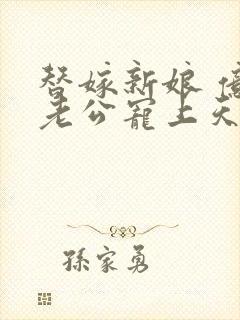 替嫁新娘
老公寵上天
孫家勇